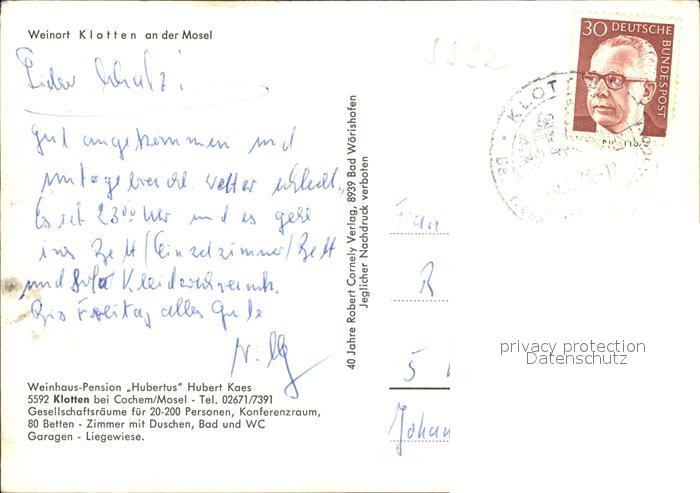 Weinort Klotten an der Mosel
30 DEUTSCHE
BUNDESPOST
KLOT
Lieber Schatz!
Gut angekommen und
untergebracht. Wetter schlecht.
Es ist 23°° Uhr und es geht
ins Bett (Einzelzimmer/Bett
und Kleiderschrank.
Bis Freitag alles Gute
Willy
Weinhaus-Pension „Hubertus" Hubert Kaes
5592 Klotten bei Cochem/Mosel - Tel. 02671/7391
Gesellschaftsräume für 20-200 Personen, Konferenzraum,
80 Betten - Zimmer mit Duschen, Bad und WC
Garagen - Liegewiese.
40 Jahre Robert Cornely Verlag, 8939 Bad Wörishofen
Jeglicher Nachdruck verboten
R
5
Johan
privacy protection
Datenschutz